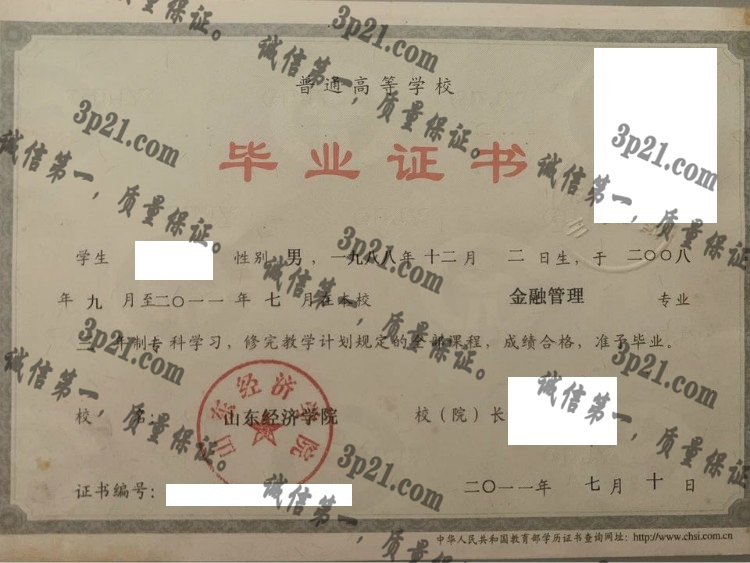 普通高等学校
毕业证书
学生 性别 男，一九八八年 十二月 二日生，于 二〇〇八
年 九 月至二〇一一年 七 月在本校 金融管理 专业
三 年制专科学习，修完教学计划规定的全部课程，成绩合格，准予毕业。
校 名：山东经济学院 校（院）长
山东经济学院
证书编号： 二〇一一年 七月 十 日
中华人民共和国教育部学历证书查询网址：http://www.chsi.com.cn
3p21.com
诚信第一，质量保证。
3p21.com
诚信第一，质量保证。
3p21.com
诚信第一，质量保证。
3p21.com
诚信第一，质量保证。
3p21.com
诚信第一，质量保证。
3p21.com
诚信第一，质量保证。
3p21.com
诚信第一，质量保证。
3p21.com
诚信第一，质量保证。